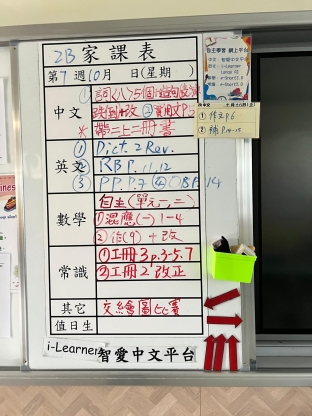 2B 家課表
第7週10月 日(星期 )
中文
① 詞(八)5個
② 實用P.5
※ 帶二上二冊書
英文
① Dict. 2 Rev.
② RB P.11,12
③ P.P. P.7 ④ BP.14
數學
自主(單元一,二)
①混應(一) 1-4
② 作(9) + 改
常識
①工冊3 p.3-5.7
②工冊2 改正
其它
交繪畫比賽
值日生
i-Learner 智愛中文平台
自主學習 網上平台
中文: 智愛中文平台
i-Learner
① 作文P.6
② 補P.14-15